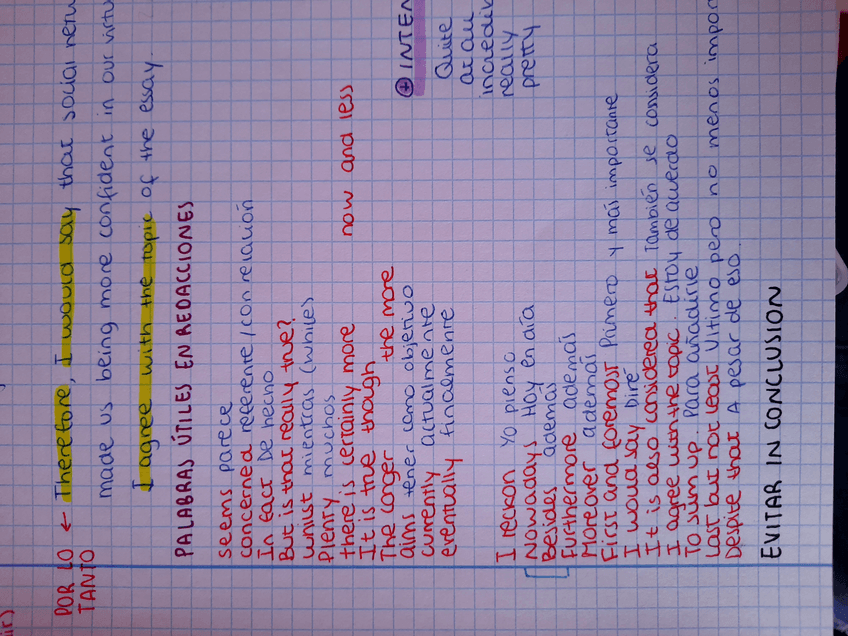 POR LO ← Therefore, I would say that social
TANTO
made us being more confident in our
I agree with the topic of the essay.
PALABRAS ÚTILES EN REDACCIONES
seems parece
concerned referente/con relación
In fact De hecho
But is that really true?
whilst mientras (while)
Plenty muchos
there is certainly more now and less
It is true though
The longer the more
aims tener como objetivo
currently actualmente
eventually finalmente
I reckon Yo pienso
Nowadays Hoy en día
Besides además
Furthermore además
Moreover además
First and foremost Primero y más importante
I would say Diré
It is also considered that También se considera
I agree with the topic. Estoy de acuerdo
To sum up. Para añadirle
Last but not least Ultimo pero no menos
Despite that A pesar de eso.
EVITAR IN CONCLUSION
+
Quite
at all
really
pretty